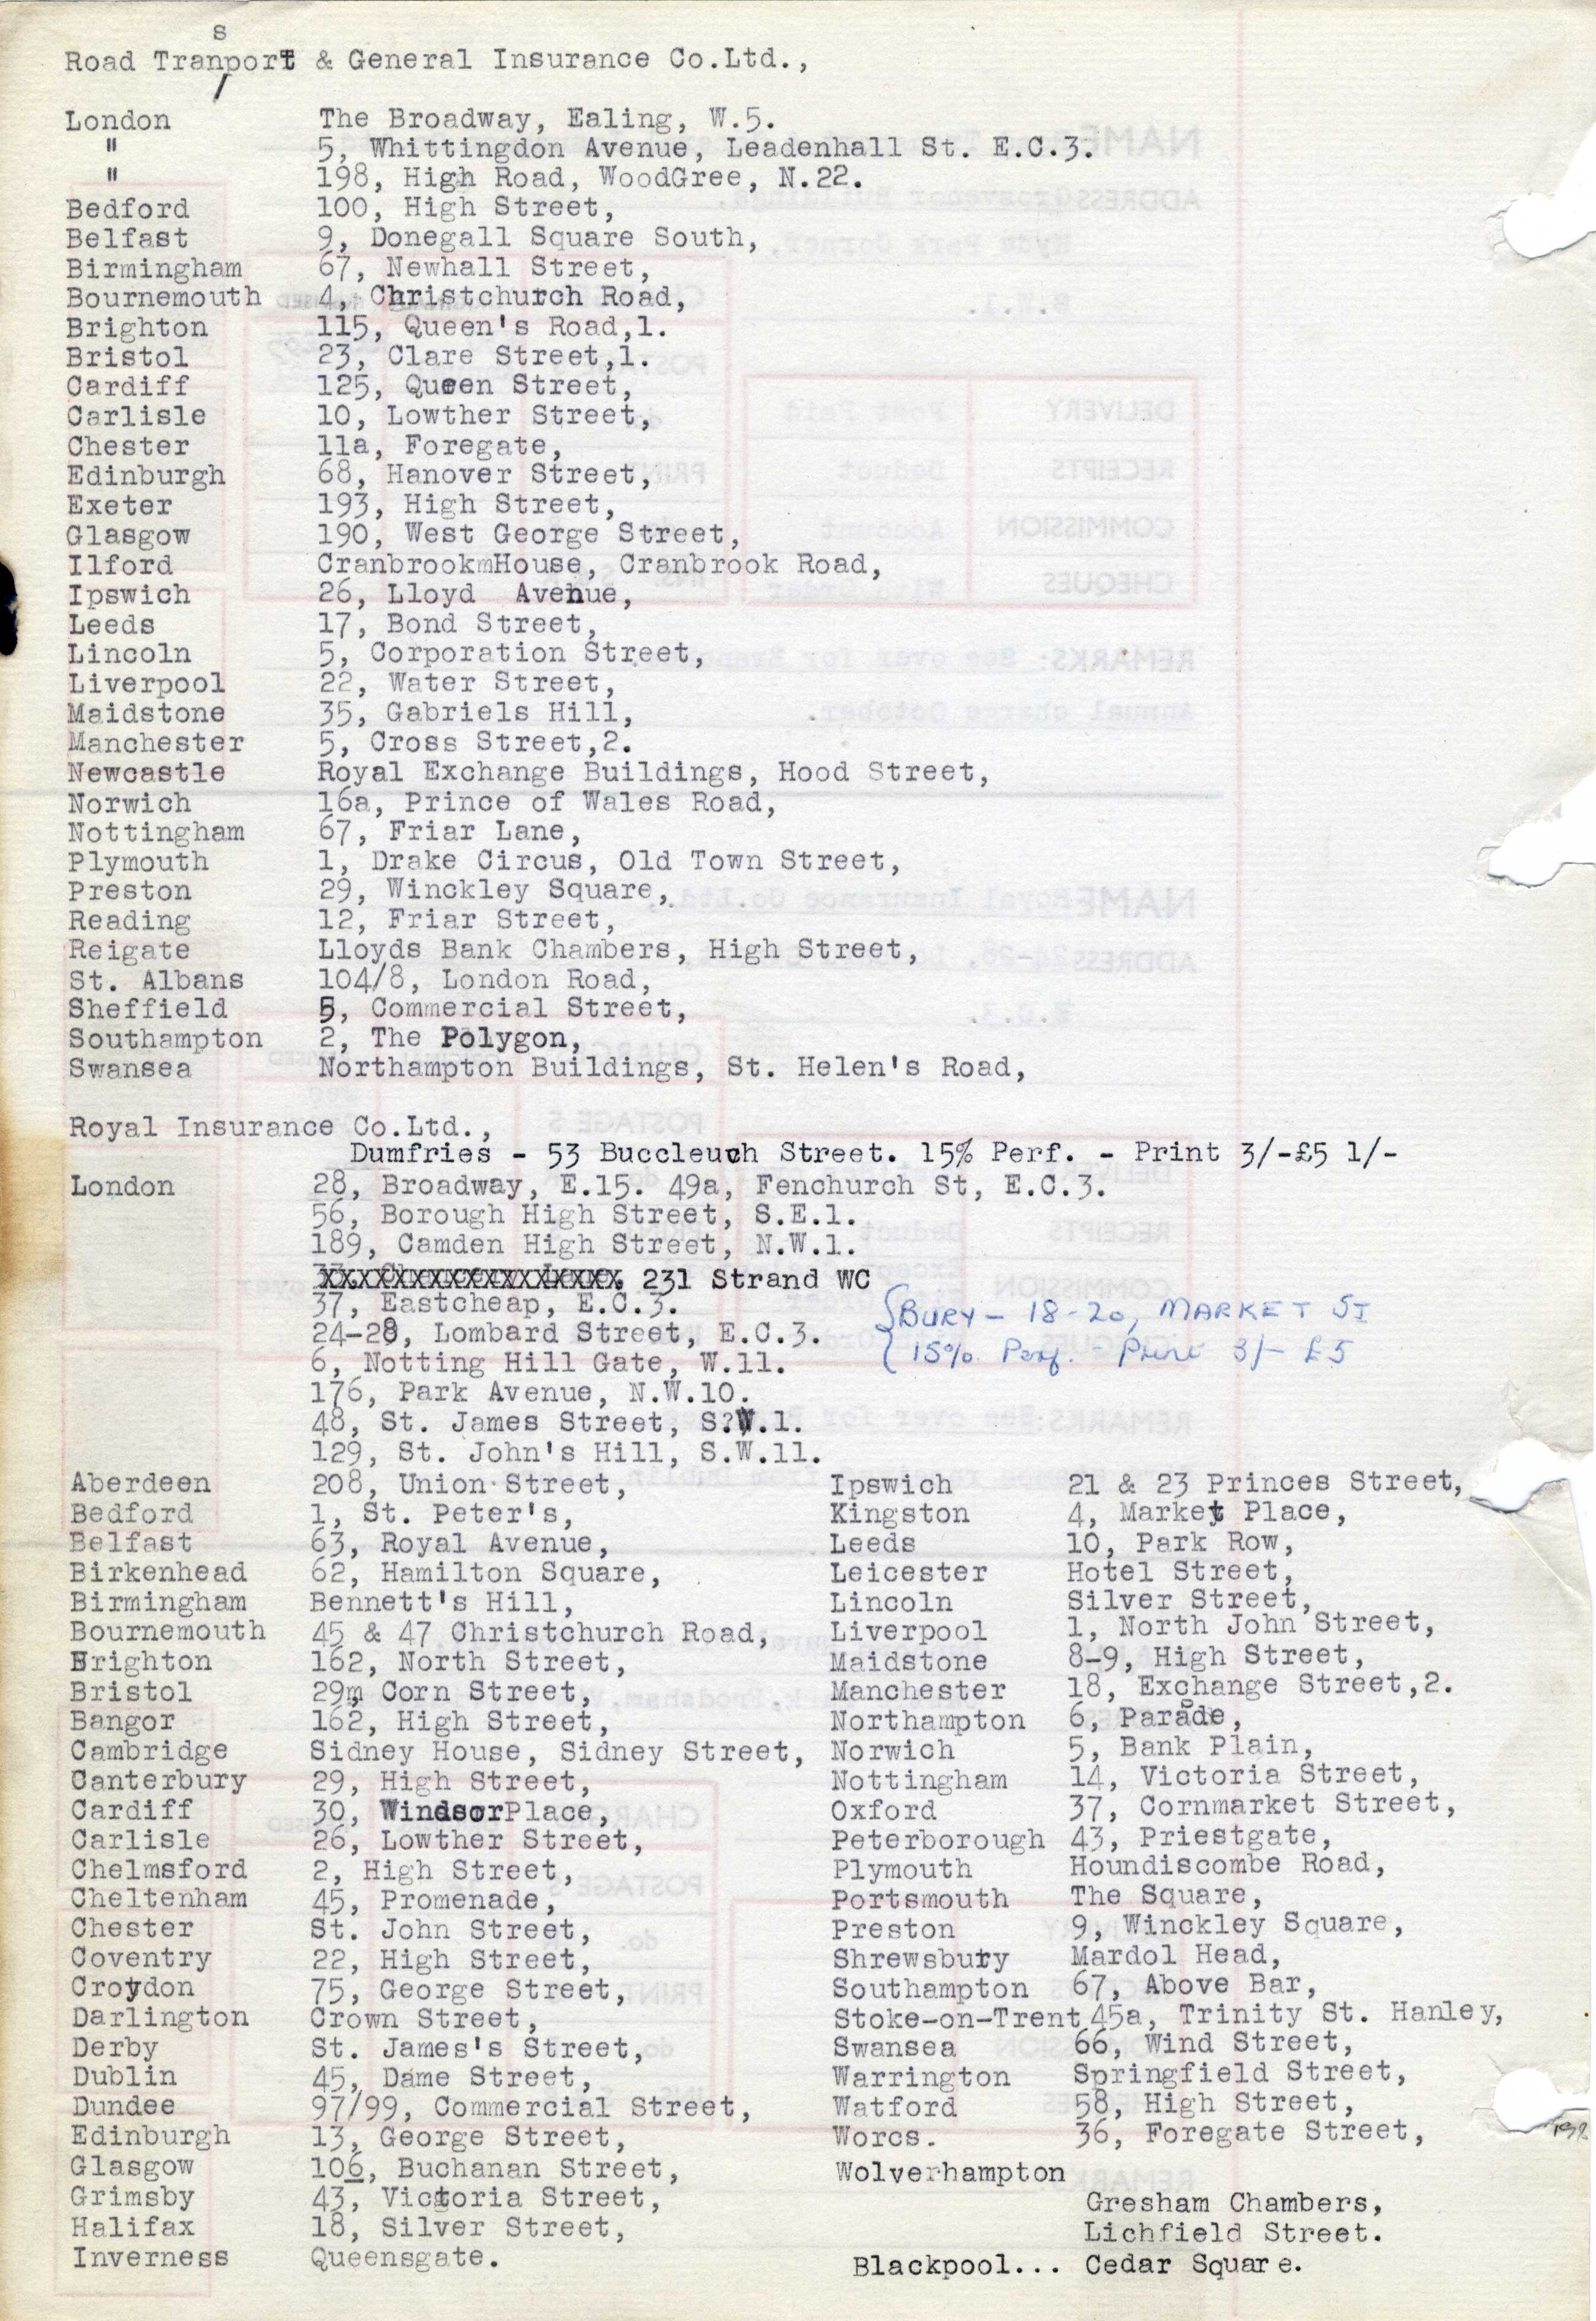 Road Transport & General Insurance Co.Ltd.,
London The Broadway, Ealing, W.5.
" 5, Whittingdon Avenue, Leadenhall St. E.C.3.
" 198, High Road, WoodGree, N.22.
Bedford 100, High Street,
Belfast 9, Donegall Square South,
Birmingham 67, Newhall Street,
Bournemouth 4, Christchurch Road,
Brighton 115, Queen's Road,1.
Bristol 23, Clare Street,1.
Cardiff 125, Queen Street,
Carlisle 10, Lowther Street,
Chester 11a, Foregate,
Edinburgh 68, Hanover Street,
Exeter 193, High Street,
Glasgow 190, West George Street,
Ilford CranbrookmHouse, Cranbrook Road,
Ipswich 26, Lloyd Avenue,
Leeds 17, Bond Street,
Lincoln 5, Corporation Street,
Liverpool 22, Water Street,
Maidstone 35, Gabriels Hill,
Manchester 5, Cross Street,2.
Newcastle Royal Exchange Buildings, Hood Street,
Norwich 16a, Prince of Wales Road,
Nottingham 67, Friar Lane,
Plymouth 1, Drake Circus, Old Town Street,
Preston 29, Winckley Square,
Reading 12, Friar Street,
Reigate Lloyds Bank Chambers, High Street,
St. Albans 104/8, London Road,
Sheffield 5, Commercial Street,
Southampton 2, The Polygon,
Swansea Northampton Buildings, St. Helen's Road,
Royal Insurance Co.Ltd.,
Dumfries - 53 Buccleuch Street. 15% Perf. - Print 3/-£5 1/-
London 28, Broadway, E.15. 49a, Fenchurch St, E.C.3.
56, Borough High Street, S.E.1.
189, Camden High Street, N.W.1.
231 Strand WC
37, Eastcheap, E.C.3.
24-28, Lombard Street, E.C.3.
BURY - 18-20, MARKET ST
15% Perf. - Print 3/- £5
6, Notting Hill Gate, W.11.
176, Park Avenue, N.W.10.
48, St. James Street, S?W.1.
129, St. John's Hill, S.W.11.
Aberdeen 208, Union Street,
Bedford 1, St. Peter's,
Belfast 63, Royal Avenue,
Birkenhead 62, Hamilton Square,
Birmingham Bennett's Hill,
Bournemouth 45 & 47 Christchurch Road,
Brighton 162, North Street,
Bristol 29m Corn Street,
Bangor 162, High Street,
Cambridge Sidney House, Sidney Street,
Canterbury 29, High Street,
Cardiff 30, WindsorPlace,
Carlisle 26, Lowther Street,
Chelmsford 2, High Street,
Cheltenham 45, Promenade,
Chester St. John Street,
Coventry 22, High Street,
Croydon 75, George Street,
Darlington Crown Street,
Derby St. James's Street,
Dublin 45, Dame Street,
Dundee 97/99, Commercial Street,
Edinburgh 13, George Street,
Glasgow 106, Buchanan Street,
Grimsby 43, Victoria Street,
Halifax 18, Silver Street,
Inverness Queensgate.
Ipswich 21 & 23 Princes Street,
Kingston 4, Market Place,
Leeds 10, Park Row,
Leicester Hotel Street,
Lincoln Silver Street,
Liverpool 1, North John Street,
Maidstone 8-9, High Street,
Manchester 18, Exchange Street,2.
Northampton 6, Parade,
Norwich 5, Bank Plain,
Nottingham 14, Victoria Street,
Oxford 37, Cornmarket Street,
Peterborough 43, Priestgate,
Plymouth Houndiscombe Road,
Portsmouth The Square,
Preston 9, Winckley Square,
Shrewsbury Mardol Head,
Southampton 67, Above Bar,
Stoke-on-Trent 45a, Trinity St. Hanley,
Swansea 66, Wind Street,
Warrington Springfield Street,
Watford 58, High Street,
Worcs. 36, Foregate Street,
Wolverhampton
Gresham Chambers,
Lichfield Street.
Blackpool... Cedar Square.